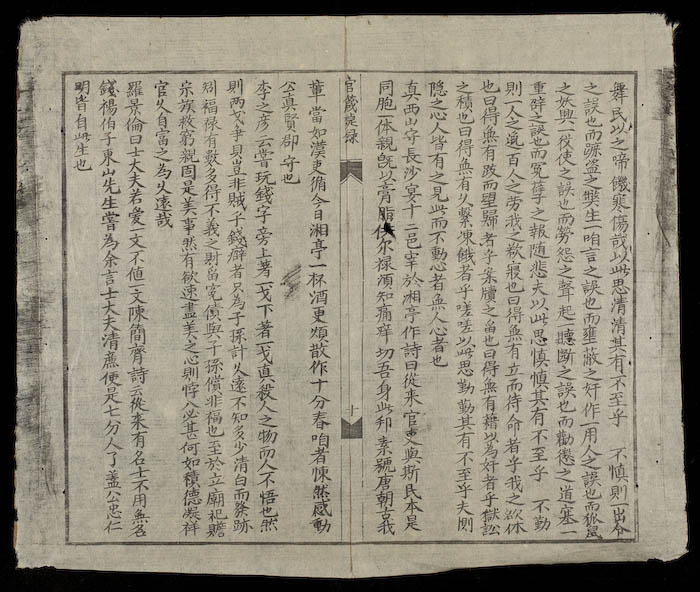 舞民以之啼饑寒傷哉以此思清清其有不至乎 不慎則一出令
之誤也而蹶盜之獘生一咱言之誤也而壅蔽之奸作一用人之誤也而狐鼠
之妖興一役使之誤也而勞怨之聲起一聽斷之誤也而勸懲之道塞一
重辟之誤也而冤孽之報隨悲夫以此思慎慎其有不至乎 不勤
則一人之逸百人之勞我之欲寢也曰得無有立而待命者乎我之欲休
也曰得無有跂而望歸者乎案牘之留也曰得無有藉此為奸者乎獄訟
之積也曰得無有久繫凍餓者乎嗟嗟以此思勤勤其有不至乎夫惻
隱之心人皆有之見此而不動心者無人心者也
真西山守長沙宴十二邑宰於湘亭作詩曰從來官吏與斯民本是
同胞一体親旣以膏脂供尔祿須知痛痒切吾身此邦素號唐朝古我
官箴定录
十
輩當如漢吏循今日湘亭一杯酒更煩散作十分春咱者悚然感動
公真賢郡守也
李之彥云嘗玩錢字旁上著一戈下著一戈真殺人之物而人不悟也然
則两戈爭貝豈非賊乎錢癖者只為子孫計久遠不知多少清白而発跡
矧福祿有数多得不義之財留寃債與子孫償非福也至於立廟祀贍
宗族救窮親固是美事然有欲速盡美之心則悖入必甚何如積德凝祥
官久自富之為久遠哉
羅景倫曰士大夫若愛一文不值一文陳簡齊詩云從來有名士不用無名
錢楊伯子東山先生嘗為余言士大夫清廉便是七分人了盖公忠仁
明皆自此生也